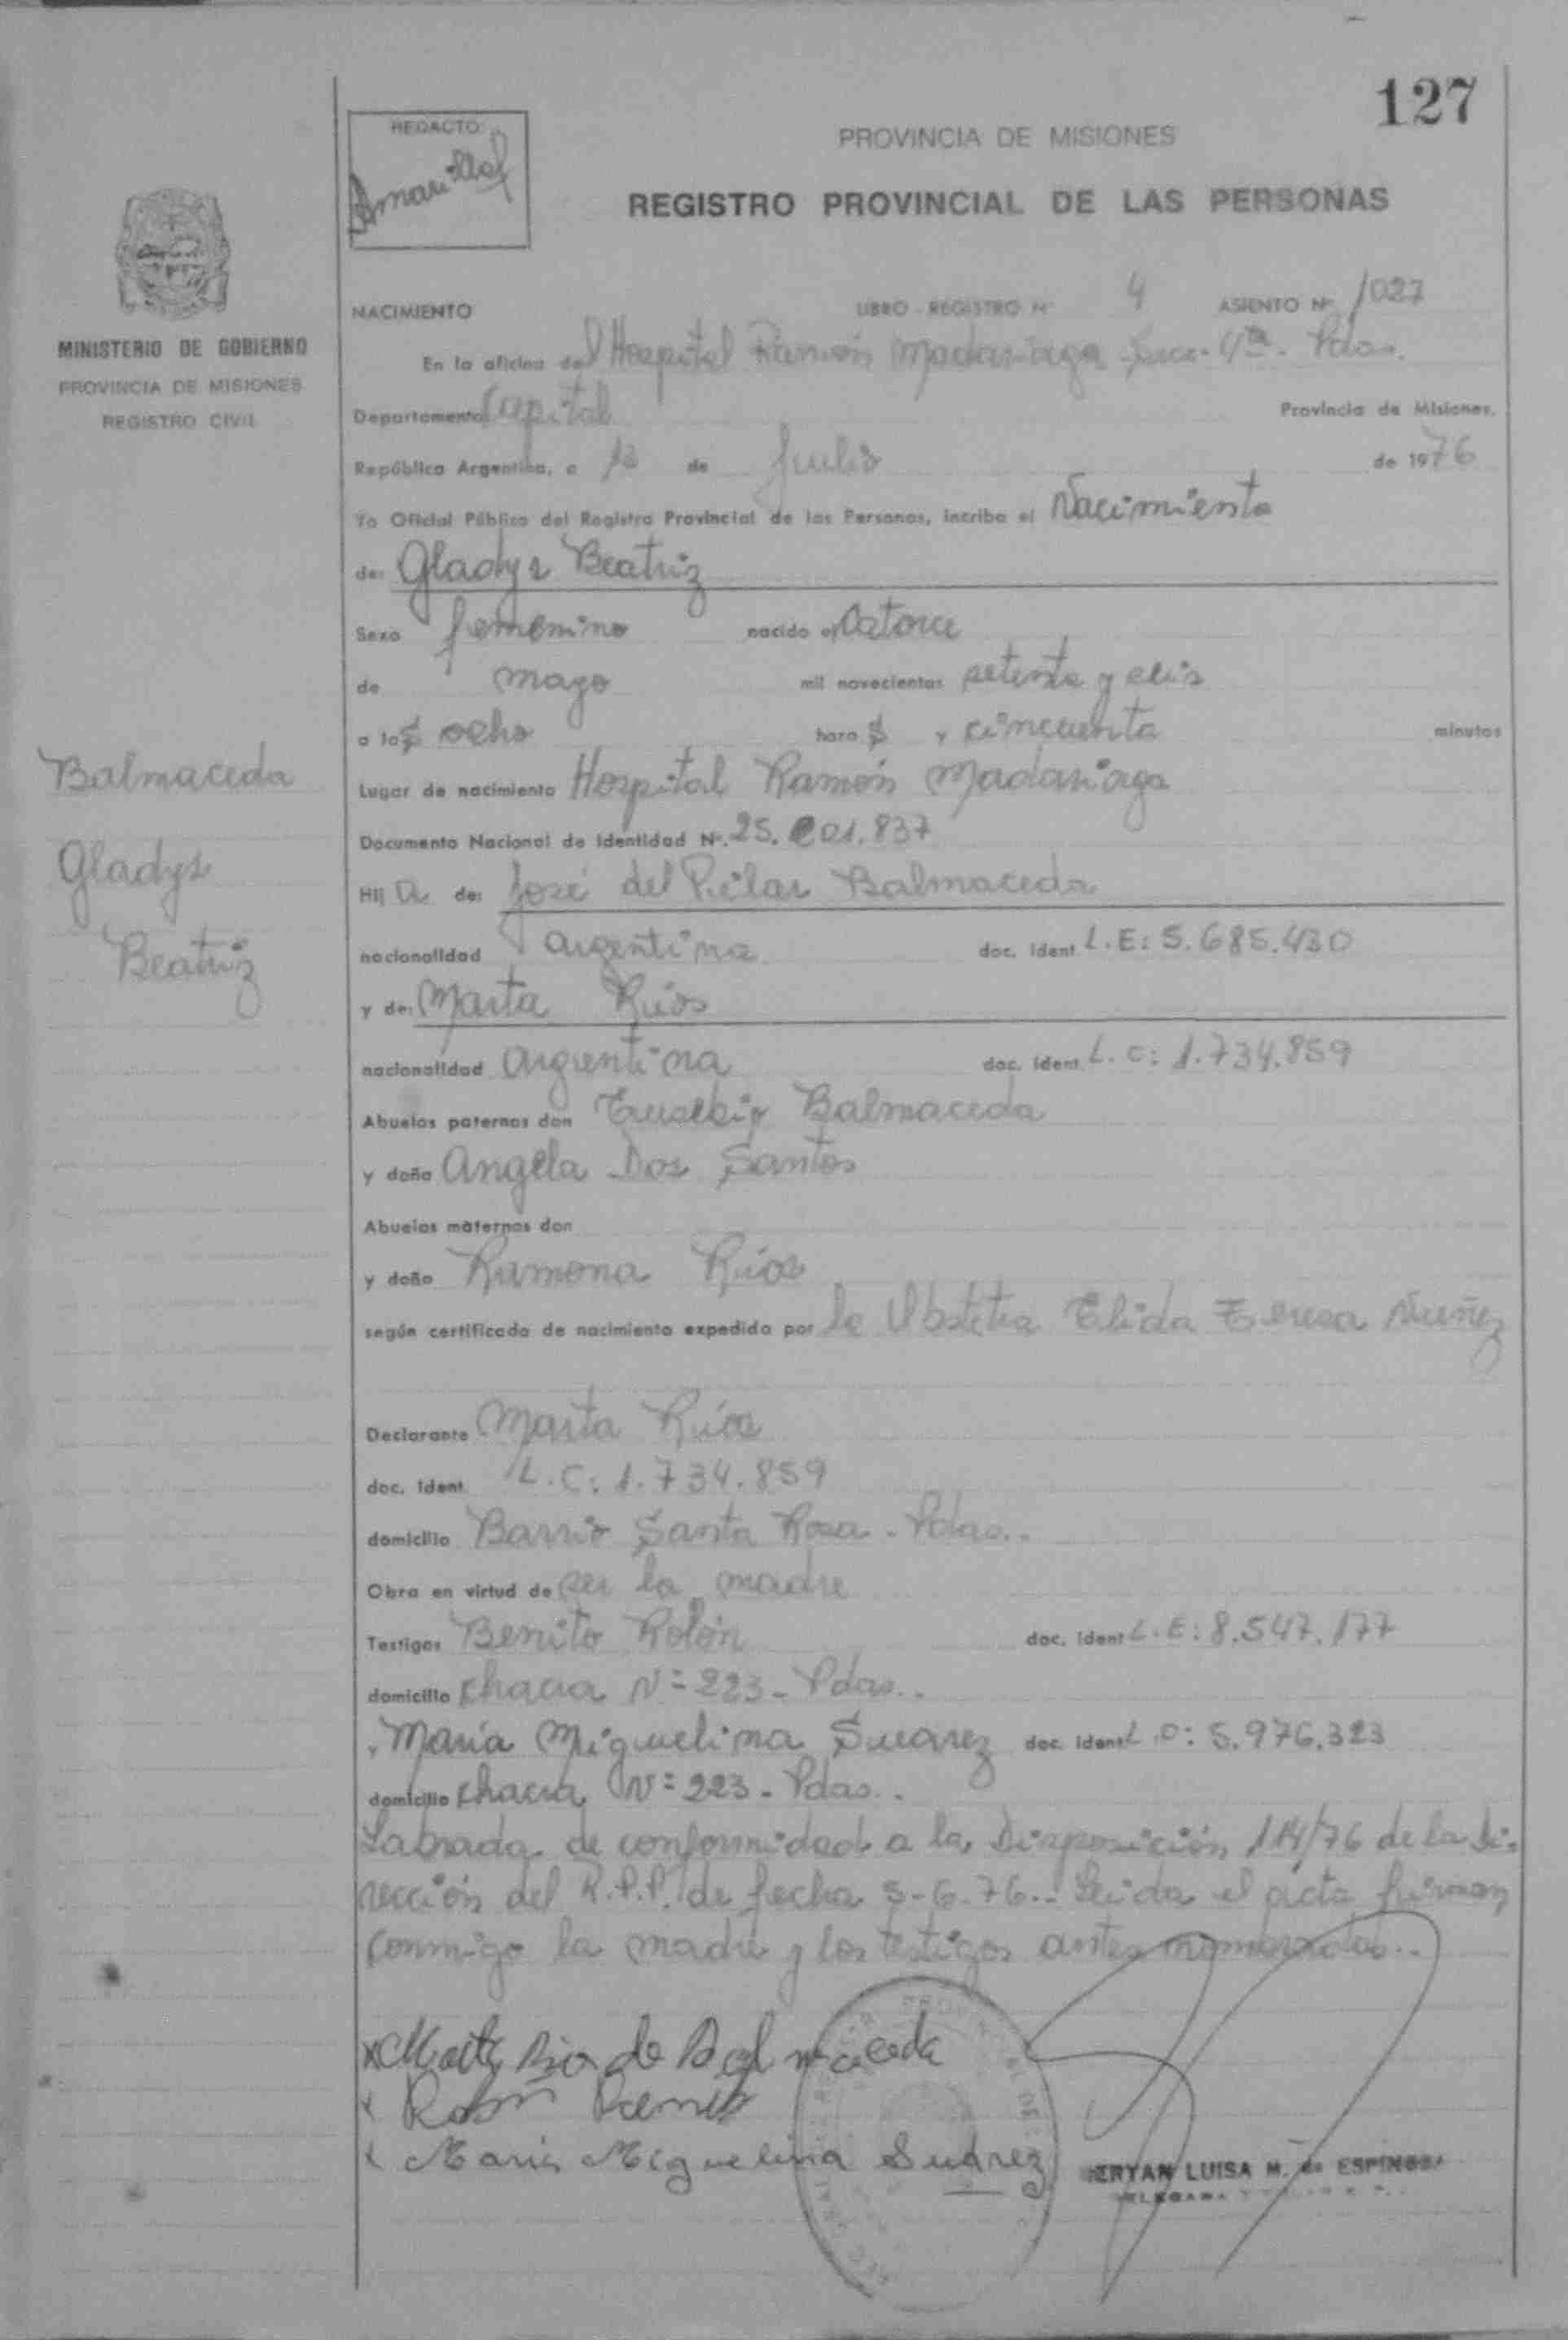 127
REDACTO
PROVINCIA DE MISIONES
REGISTRO PROVINCIAL DE LAS PERSONAS
MINISTERIO DE GOBIERNO
PROVINCIA DE MISIONES
REGISTRO CIVIL
NACIMIENTO LIBRO - REGISTRO Nº 4 ASIENTO Nº 1027
En la oficina del Hospital Ramón Madariaga Secc. 4ta. Pdas.
Departamento Capital Provincia de Misiones.
República Argentina, a de Julio de 1976
Yo Oficial Público del Registro Provincial de las Personas, incribo el Nacimiento
de: Gladys Beatriz
Sexo femenino nacido el Catorce
de mayo mil novecientos setenta y seis
a las ocho horas y cincuenta minutos
Lugar de nacimiento Hospital Ramón Madariaga
Documento Nacional de Identidad Nº. 25. 837
Hija de: José del Pilar Balmaceda
nacionalidad argentina doc. Ident. L.E: 5.685.430
y de: Marta Ríos
nacionalidad argentina doc. Ident. L.C: 1.734.859
Abuelos paternos don Eusebio Balmaceda
y doña Angela Dos Santos
Abuelos maternos don
y doña Ramona Ríos
según certificado de nacimiento expedido por la Obstetra Elida Teresa Nuñez
Declarante Marta Ríos
doc. Ident. L.C: 1.734.859
domicilio Barrio Santa Rosa - Pdas..
Obra en virtud de ser la madre
Testigos Benito Rolón doc. ident L.E: 8.547.177
domicilio chacra Nº 223 - Pdas..
y María Miguelina Suarez doc. ident L.C: 5.976.323
domicilio chacra Nº 223 - Pdas..
Labrada de conformidad a la Disposición 114/76 de la Di-
rección del R.P.P. de fecha 3-6-76.- Leida el acta firman
conmigo la madre y los testigos antes nombrados..
Balmaceda
Gladys
Beatriz
x Marta Rio de Balmaceda
x Rolon Benito
x Maria Miguelina Suárez
LUISA M. de ESPINOSA